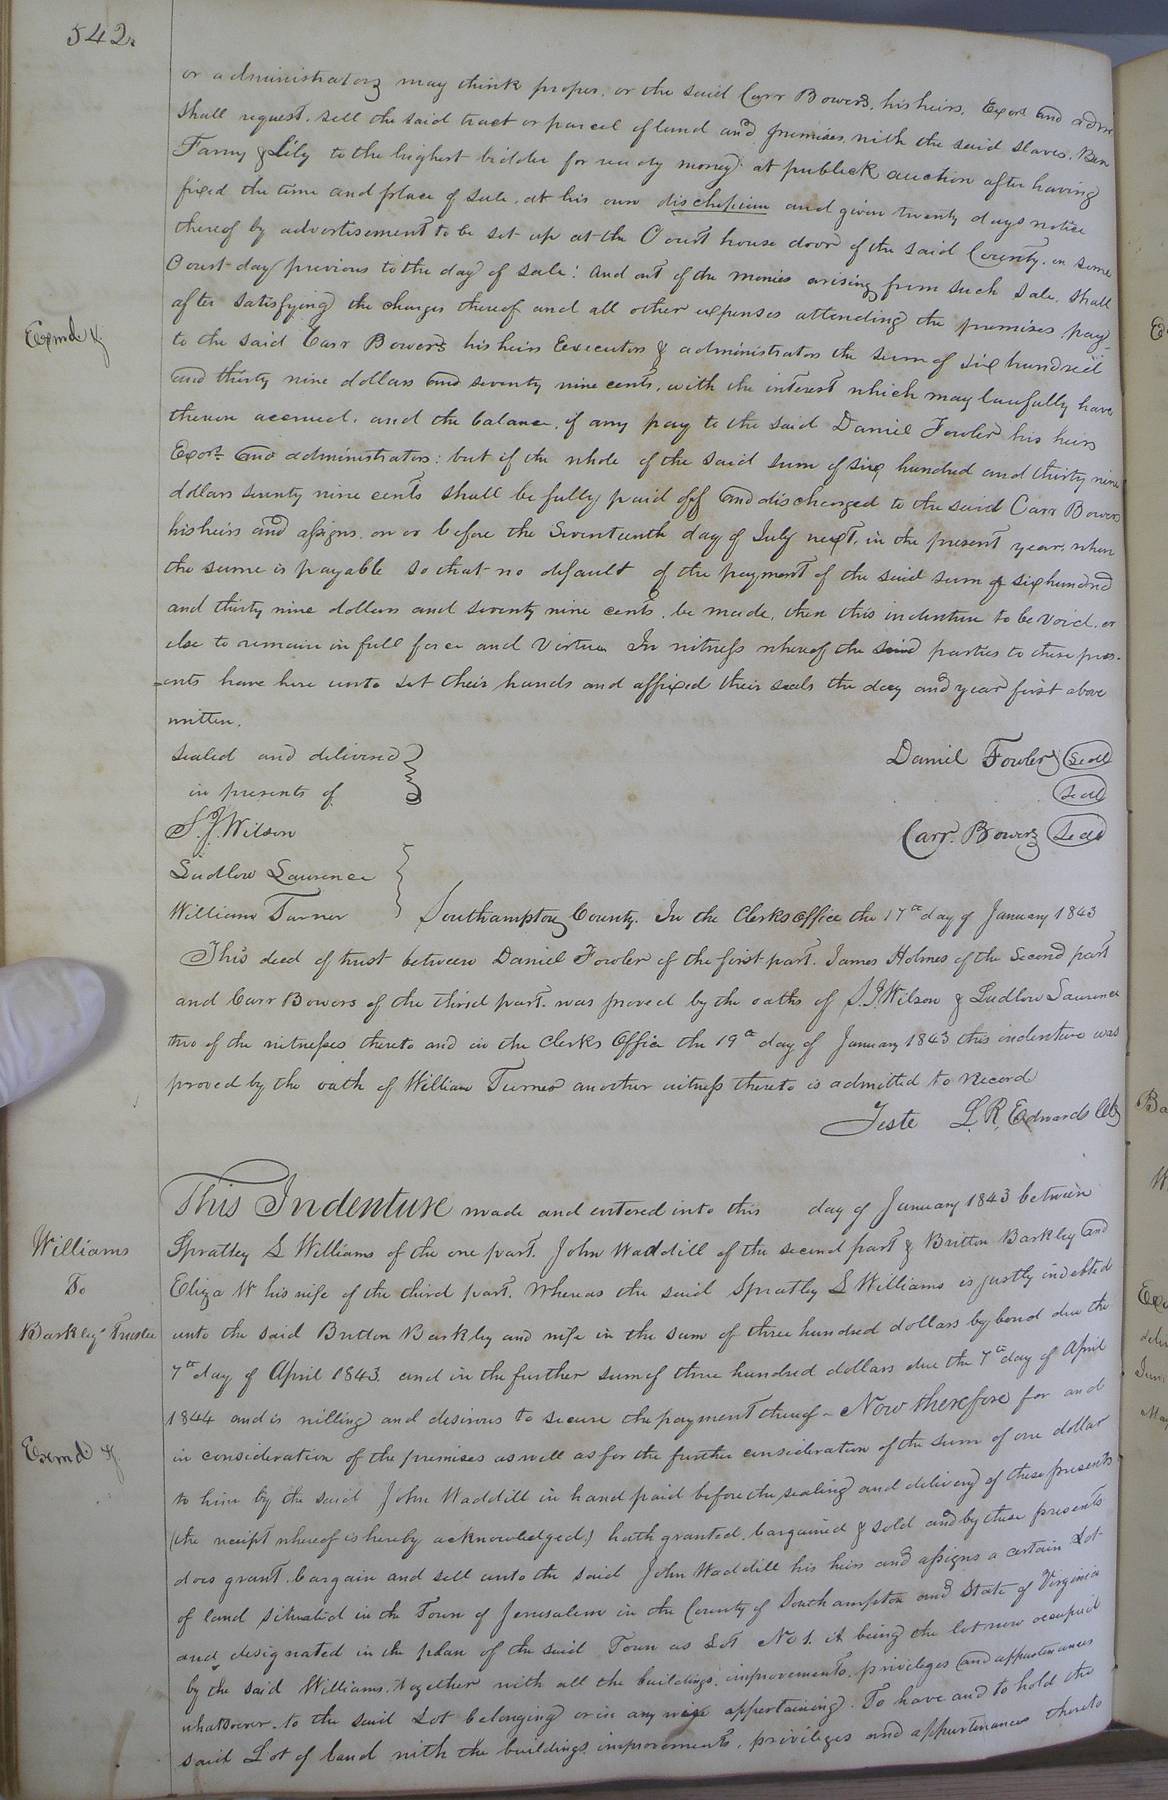 542.
or administrators may think proper, or the said Carr Bowers, his heirs, Exors and adms
shall request, sell the said tract or parcel of land and premises, with the said slaves, Ben
Fanny & Lily to the highest bidder for ready money at publick auction after having
fixed the time and place of sale, at his own and given twenty days notice
thereof by advertisement to be set up at the Court house door of the said County, on some
Court day previous to the day of sale: And out of the monies arising from such sale, shall
after satisfying the charges thereof and all other expenses attending the premises, pay
Exmd
to the said Carr Bowers his heirs Executors & administrators the sum of six hundred
and thirty nine dollars and seventy nine cents, with the interest which may lawfully have
thereon accrued, and the balance, if any pay to the said Daniel Fowler his heirs
Exors and administrators: but if the whole of the said sum of six hundred and thirty nine
dollars seventy nine cents shall be fully paid off and discharged to the said Carr Bowers
his heirs and assigns, on or before the Seventeenth day of July next, in the present year, when
the same is payable so that no default of the payment of the said sum of six hundred
and thirty nine dollars and seventy nine cents, be made, then this indenture to be void, or
else to remain in full force and virtue In witness whereof the said parties to these pres-
-ents have here unto set their hands and affixed their seals the day and year first above
written.
Sealed and delivered
in presents of
Daniel Fowler Seal
Seal
S. J. Wilson
Carr. Bowers Seal
Ludlow Laurence
William Turner
Southampton County. In the Clerks office the 17th day of January 1843
This deed of trust between Daniel Fowler of the first part. James Holmes of the Second part
and Carr Bowers of the third part. was proved by the oaths of S. J. Wilson & Ludlow Laurence
two of the witnesses thereto and in the Clerks Office the 19th day of January 1843 this indenture was
proved by the oath of William Turner another witness thereto is admitted to record
Teste L. R. Edwards Clk
This Indenture made and entered into this day of January 1843 between
Williams
To
Barkley's Trustee
Spratley S Williams of the one part. John Waddill of the second part & Britton Barkley and
Eliza W his wife of the third part. Whereas the said Spratley S Williams is justly indebted
unto the said Britton Barkley and wife in the sum of three hundred dollars by bond due the
7th day of April 1843. and in the further sum of three hundred dollars due the 7th day of April
1844 and is willing and desirous to secure the payment thereof - Now therefore for and
Exmd
in consideration of the premises as well as for the further consideration of the sum of one dollar
to him by the said John Waddill in hand paid before the sealing and delivery of these presents
(the receipt whereof is hereby acknowledged) hath granted, bargained & sold and by these presents
does grant, bargain and sell unto the said John Waddill his heirs and assigns a certain Lot
of land situated in the Town of Jerusalem in the County of Southampton and State of Virginia
and designated in the plan of the said Town as Lot No 1. it being the lot now occupied
by the said Williams. together with all the buildings, improvements, privileges and appurtenances
whatsoever, to the said Lot belonging or in any wise appertaining. To have and to hold the
said Lot of land with the buildings improvements, privileges and appurtenances thereto